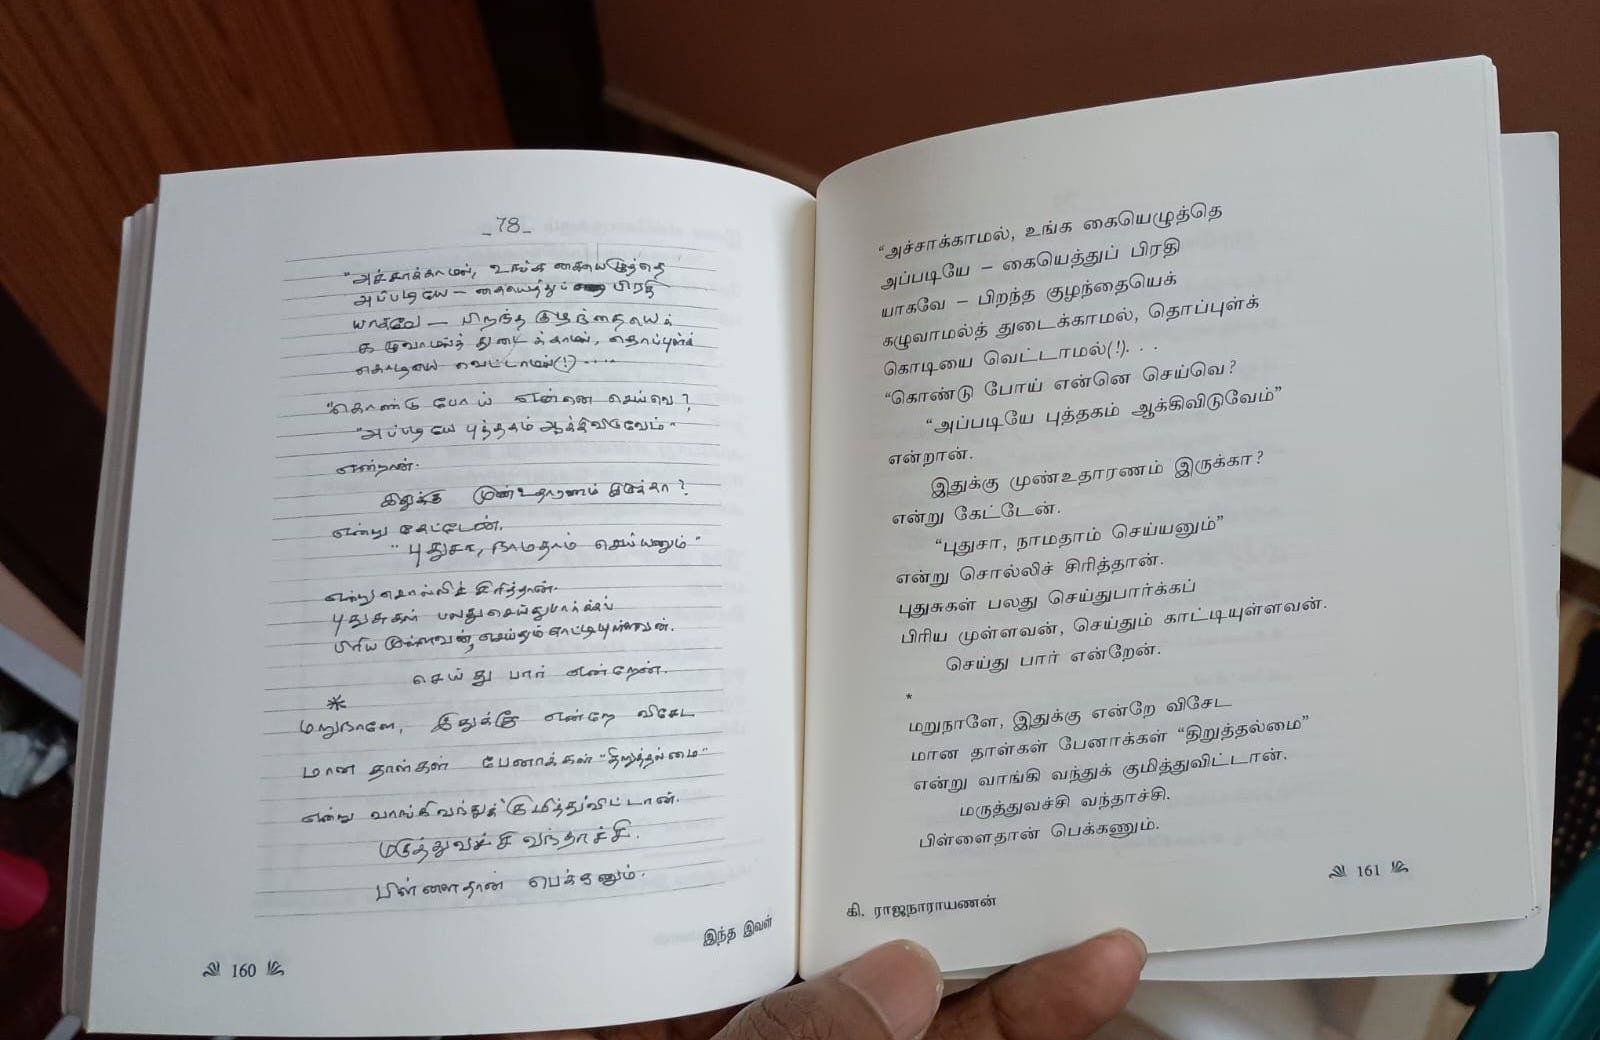 -78-
"அச்சாக்காமல், உங்க கையெழுத்தெ
அப்படியே – கையெத்துப் பிரதி
யாகவே – பிறந்த குழந்தையெக்
கழுவாமல்த் துடைக்காமல், தொப்புள்க்
கொடியை வெட்டாமல்(!).....
"கொண்டு போய் என்னெ செய்வெ?
"அப்படியே புத்தகம் ஆக்கிவிடுவேம்"
என்றான்.
இதுக்கு முண்உதாரணம் இருக்கா?
என்று கேட்டேன்.
"புதுசா, நாமதாம் செய்யணும்"
என்று சொல்லிச் சிரித்தான்.
புதுசுகள் பலது செய்துபார்க்கப்
பிரிய முள்ளவன், செய்தும் காட்டியுள்ளவன்.
செய்து பார் என்றேன்.
*
மறுநாளே, இதுக்கு என்றே விசேட
மான தாள்கள் பேனாக்கள் "திறுத்தல்மை"
என்று வாங்கி வந்துக் குமித்துவிட்டான்.
மருத்துவச்சி வந்தாச்சி.
பிள்ளைதான் பெக்கணும்.
இந்த இவள்
160
"அச்சாக்காமல், உங்க கையெழுத்தெ
அப்படியே – கையெத்துப் பிரதி
யாகவே – பிறந்த குழந்தையெக்
கழுவாமல்த் துடைக்காமல், தொப்புள்க்
கொடியை வெட்டாமல்(!). . .
"கொண்டு போய் என்னெ செய்வெ?
"அப்படியே புத்தகம் ஆக்கிவிடுவேம்"
என்றான்.
இதுக்கு முண்உதாரணம் இருக்கா?
என்று கேட்டேன்.
"புதுசா, நாமதாம் செய்யனும்"
என்று சொல்லிச் சிரித்தான்.
புதுசுகள் பலது செய்துபார்க்கப்
பிரிய முள்ளவன், செய்தும் காட்டியுள்ளவன்.
செய்து பார் என்றேன்.
*
மறுநாளே, இதுக்கு என்றே விசேட
மான தாள்கள் பேனாக்கள் "திறுத்தல்மை"
என்று வாங்கி வந்துக் குமித்துவிட்டான்.
மருத்துவச்சி வந்தாச்சி.
பிள்ளைதான் பெக்கணும்.
161
கி. ராஜநாராயணன்